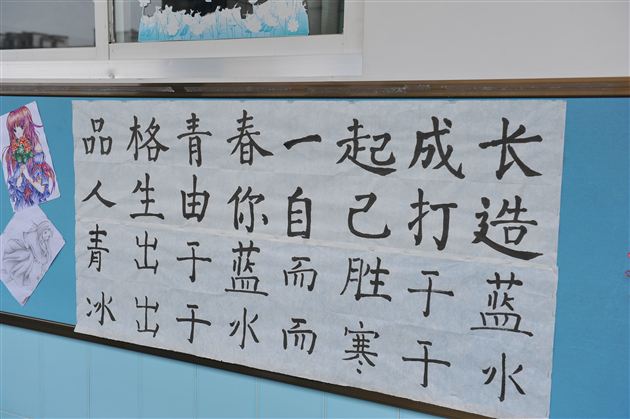 品格青春一起成长
人生由你自己打造
青出于蓝而胜于蓝
冰出于水而寒于水